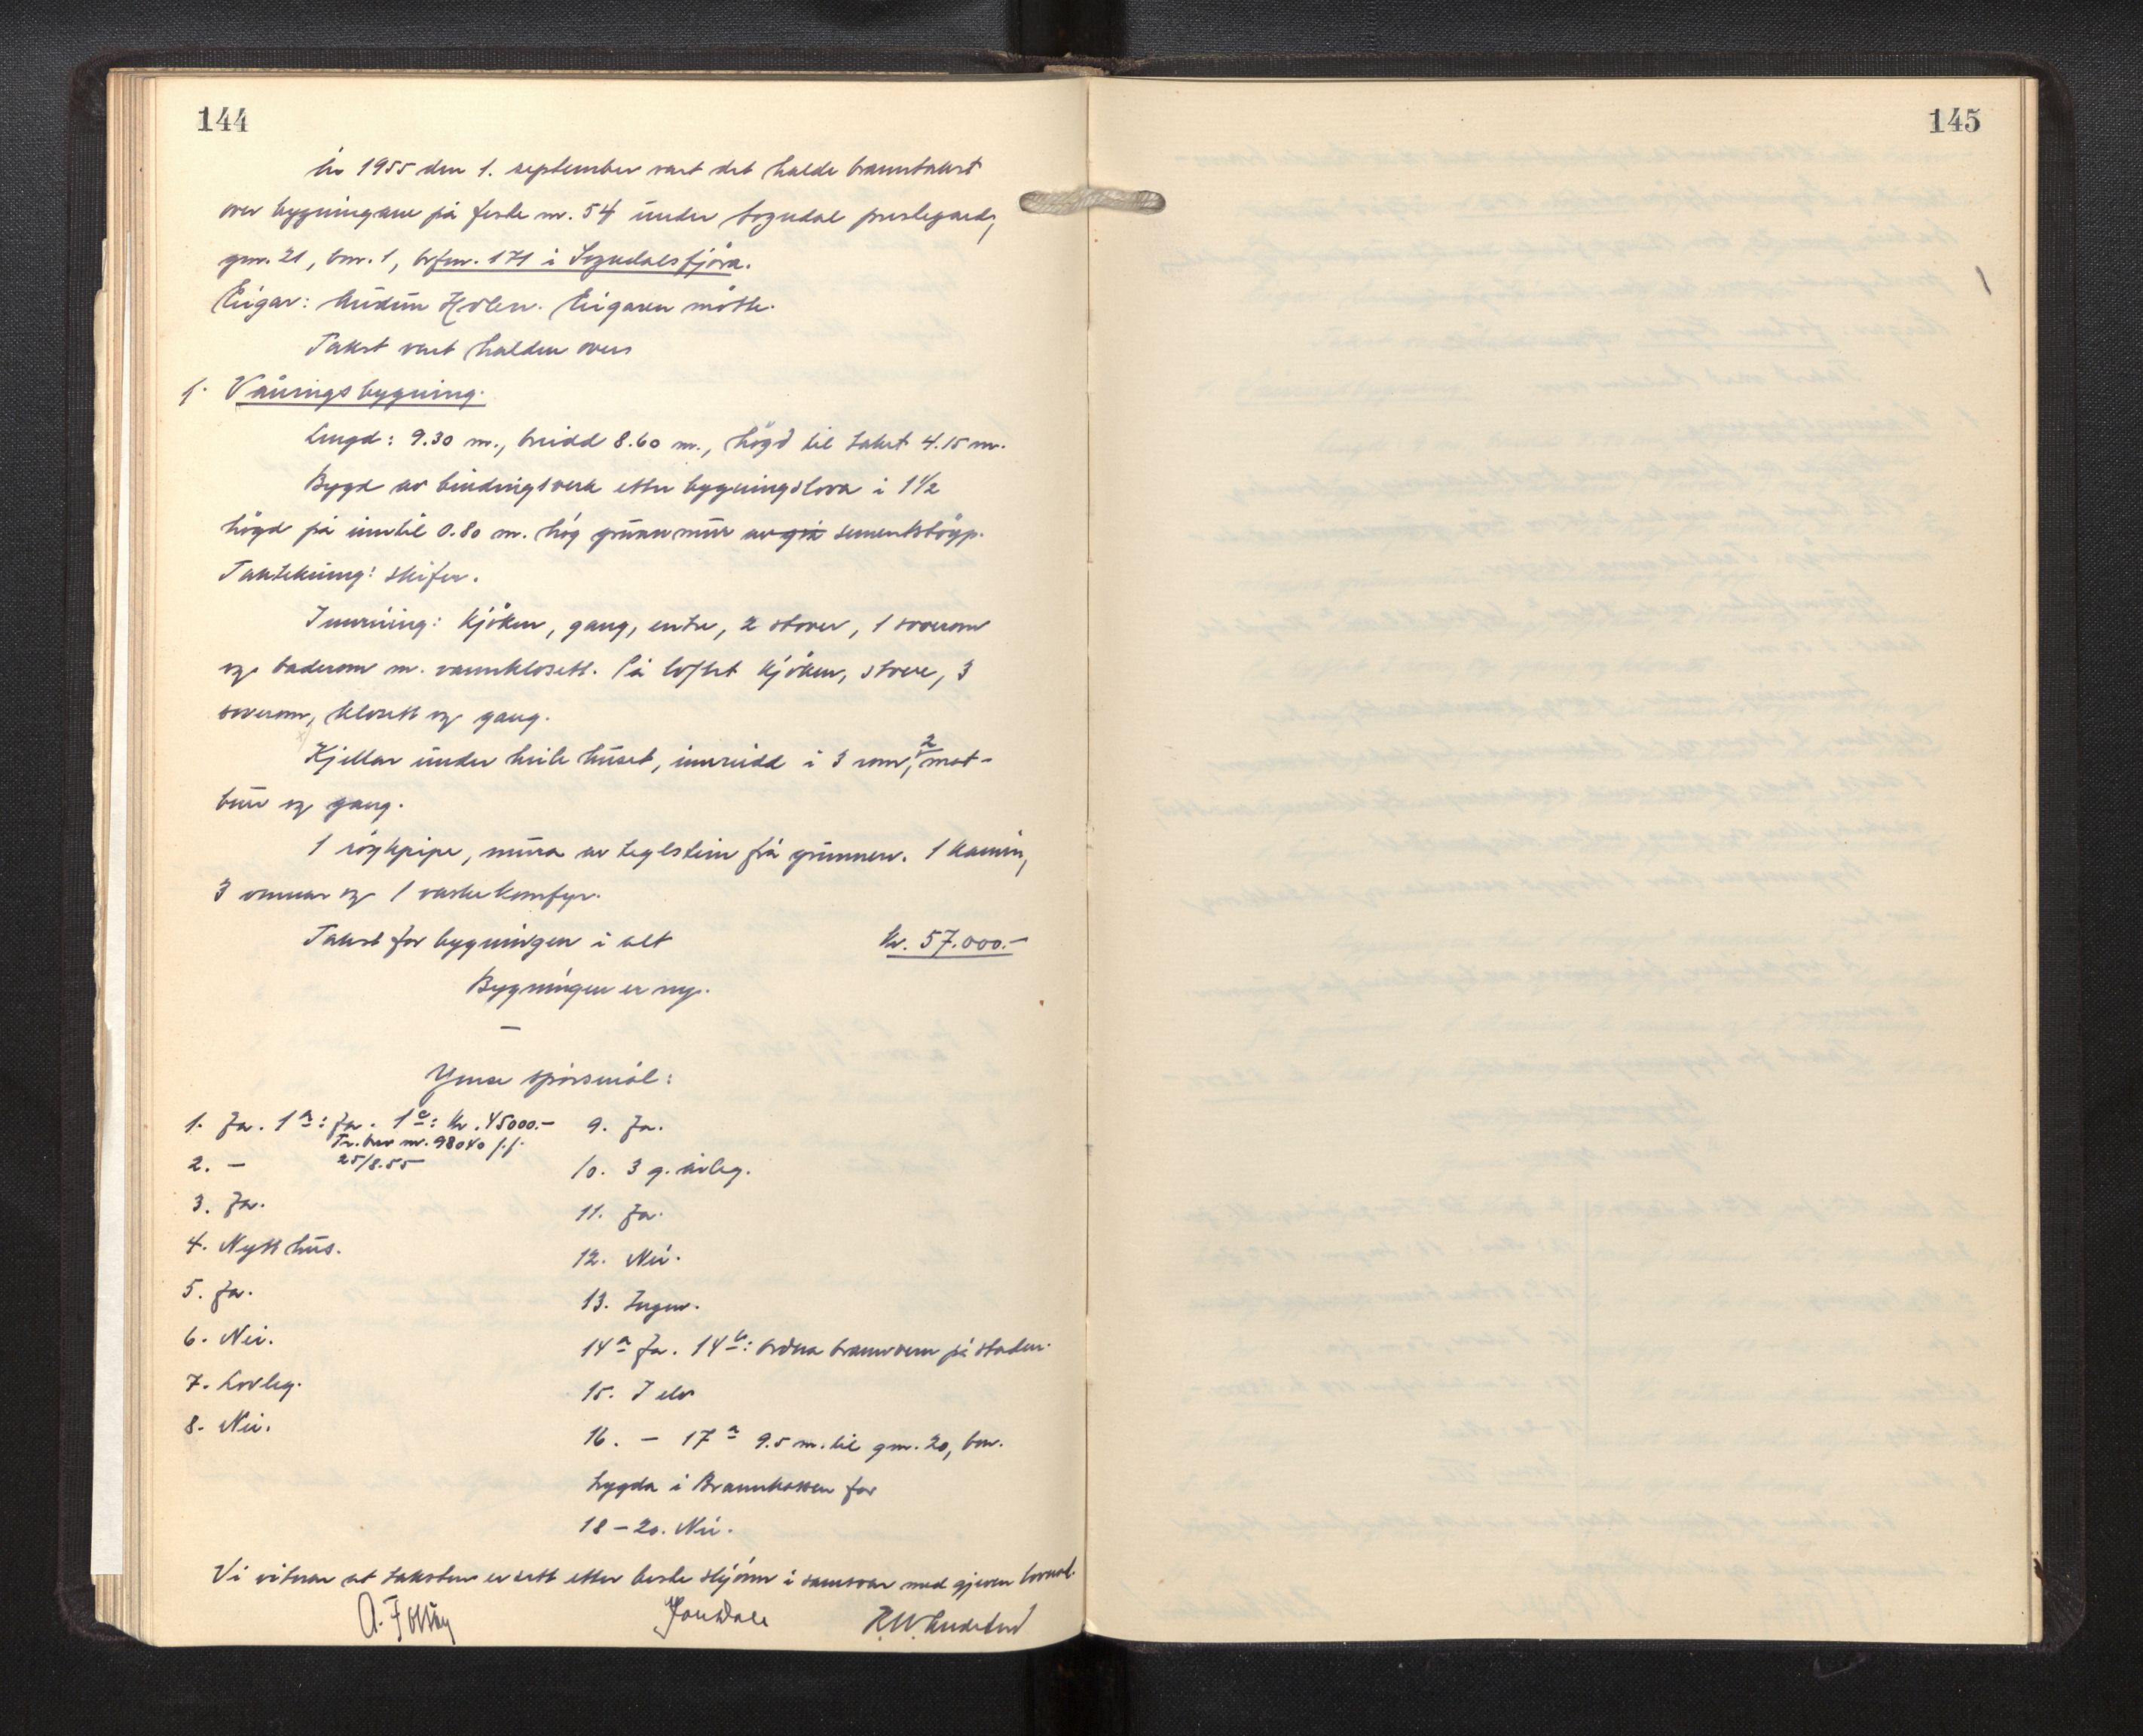 144
År 1955 den 1. september vart det halde branntakst
over bygningane på feste nr. 54 under Sogndal prestegard,
gnr. 21, bnr. 1, brfnr. 171 i Sogndalsfjøra.
Eigar: Audun Holen. Eigaren møtte.
Takst vart halden over
1. Våningsbygning.
Lengd: 9.30 m., breidd 8.60 m., högd til taket 4.15 m.
Bygd av bindingsverk etter bygningslova i 1½
högd på inntil 0.80 m. høg grunnmur av grå sementstöyp.
Taktekning: skifer.
Innreiing: Kjöken, gang, entre, 2 stover, 1 soverom
og baderom m. vannklosett. På loftet kjöken, stove, 3
soverom, klosett og gang.
Kjellar under heile huset, innreidd i 3 rom, 2 mat-
bur og gang.
1 röykpipe, mura av teglstein frå grunnen. 1 kamin,
3 omnar og 1 vaskekomfyr.
Takst for bygningen i alt kr. 57.000.-
Bygningen er ny.
—
Ymse spörsmål:
1. Ja. 1a: Ja. 1c: kr. 45000.-
Tr. brev nr. 98040 f.f.
25/8.55
2. —
3. Ja.
4. Nytt hus.
5. Ja.
6. Nei.
7. Lovleg.
8. Nei.
9. Ja.
10. 3 g. årleg.
11. Ja.
12. Nei.
13. Ingen.
14a Ja. 14b: Ordna brannvern på staden.
15. I elv
16. — 17a 9.5 m. til gnr. 20, bnr.
trygda i Brannkassen for
18-20. Nei.
Vi vitnar at taksten er sett etter beste skjönn i samsvar med gjeven lovnad.
145